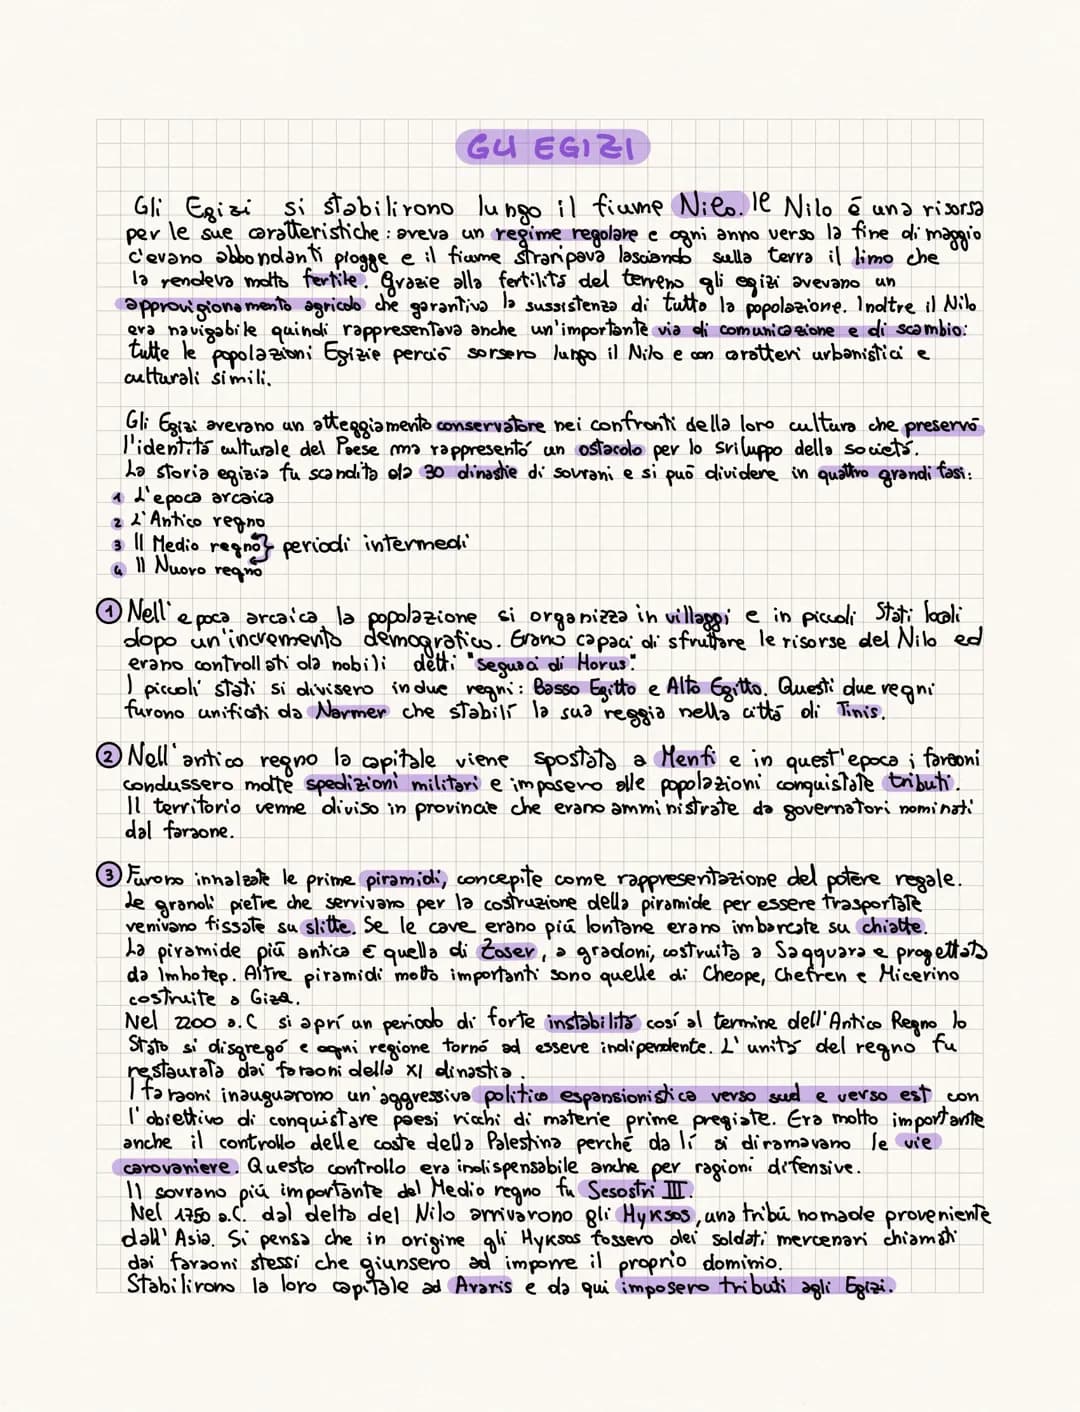 GLI EGIZI
Gli Egizi si stabilirono lungo il fiume Nilo. Il Nilo é una risorsa
per le sue caratteristiche: aveva un regime regolare e ogni anno verso la fine di maggio
c'evano abbondanti piogge e il fiume straripava lasciando sulla terra il limo che
la rendeva molto fertile. Grazie alla fertilità del terreno gli egizi avevano un
approvigionamento agricolo che garantiva la sussistenza di tutta la popolazione. Inoltre il Nilo
era navigabile quindi rappresentava anche un'importante via di comunicazione e di scambio:
tutte le popolazioni Egizie perció sorsero lungo il Nilo e con caratteri urbanistici e
culturali simili.
Gli Egizi avevano un atteggiamento conservatore nei confronti della loro cultura che preservó
l'identitá culturale del Paese ma rappresentó un ostacolo per lo sviluppo della societá.
La storia egizia fu scandita da 30 dinastie di sovrani e si puó dividere in quattro grandi fasi:
1 L'epoca arcaica
2 L'Antico regno
3 Il Medio regno } periodi intermedi
4 Il Nuovo regno
1 Nell'epoca arcaica la popolazione si organizza in villaggi e in piccoli Stati locali
dopo un'incremento demografico. Erano capaci di sfruttare le risorse del Nilo ed
erano controllati da nobili detti "seguaci di Horus".
I piccoli stati si divisero in due regni: Basso Egitto e Alto Egitto. Questi due regni
furono unificati da Narmer che stabilí la sua reggia nella cittá di Tinis.
2 Nell'antico regno la capitale viene spostata a Menfi e in quest'epoca i faraoni
condussero molte spedizioni militari e imposero alle popolazioni conquistate tributi.
Il territorio venne diviso in provincie che erano amministrate da governatori nominati
dal faraone.
3 Furono innalzate le prime piramidi, concepite come rappresentazione del potere regale.
Le grandi pietre che servivano per la costruzione della piramide per essere trasportate
venivano fissate su slitte. Se le cave erano piú lontane erano imbarcate su chiatte.
La piramide piú antica é quella di Zoser, a gradoni, costruita a Saqquara e progettata
da Imhotep. Altre piramidi molto importanti sono quelle di Cheope, Chefren e Micerino
costruite a Giza.
Nel 2200 a.C si aprí un periodo di forte instabilitá cosí al termine dell'Antico Regno lo
Stato si disgregó e ogni regione tornó ad esseve indipendente. L'unitá del regno fu
restaurata dai faraoni della XI dinastia.
I faraoni inaugurarono un'aggressiva politica espansionistica verso sud e verso est con
l'obiettivo di conquistare paesi ricchi di materie prime pregiate. Era molto importante
anche il controllo delle coste della Palestina perché da lí si diramavano le vie
carovaniere. Questo controllo era indispensabile anche per ragioni difensive.
Il sovrano piú importante del Medio regno fu Sesostri III.
Nel 1750 a.C. dal delta del Nilo arrivarono gli Hyksos, una tribú nomade proveniente
dall'Asia. Si pensa che in origine gli Hyksos fossero dei soldati mercenari chiamati
dai faraoni stessi che giunsero ad imporre il proprio dominio.
Stabilirono la loro capitale ad Avaris e da qui imposero tributi agli Egizi.